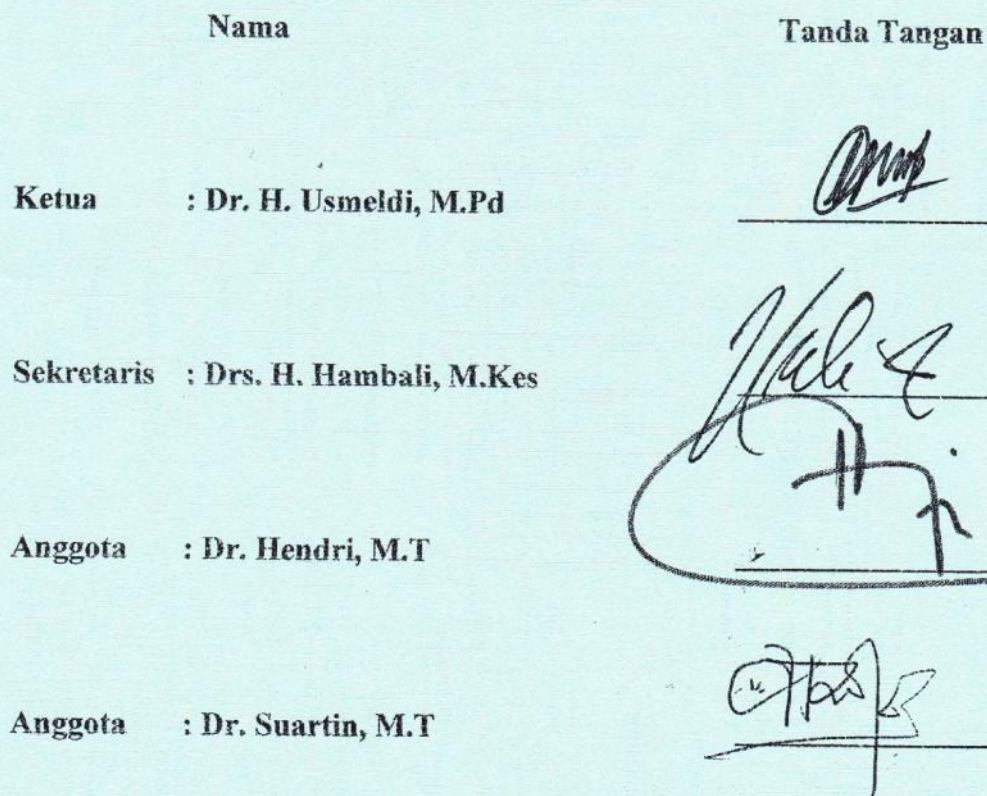 Nama Tanda Tangan
Ketua : Dr. H. Usmeldi, M.Pd
Sekretaris : Drs. H. Hambali, M.Kes
Anggota : Dr. Hendri, M.T
Anggota : Dr. Suartin, M.T